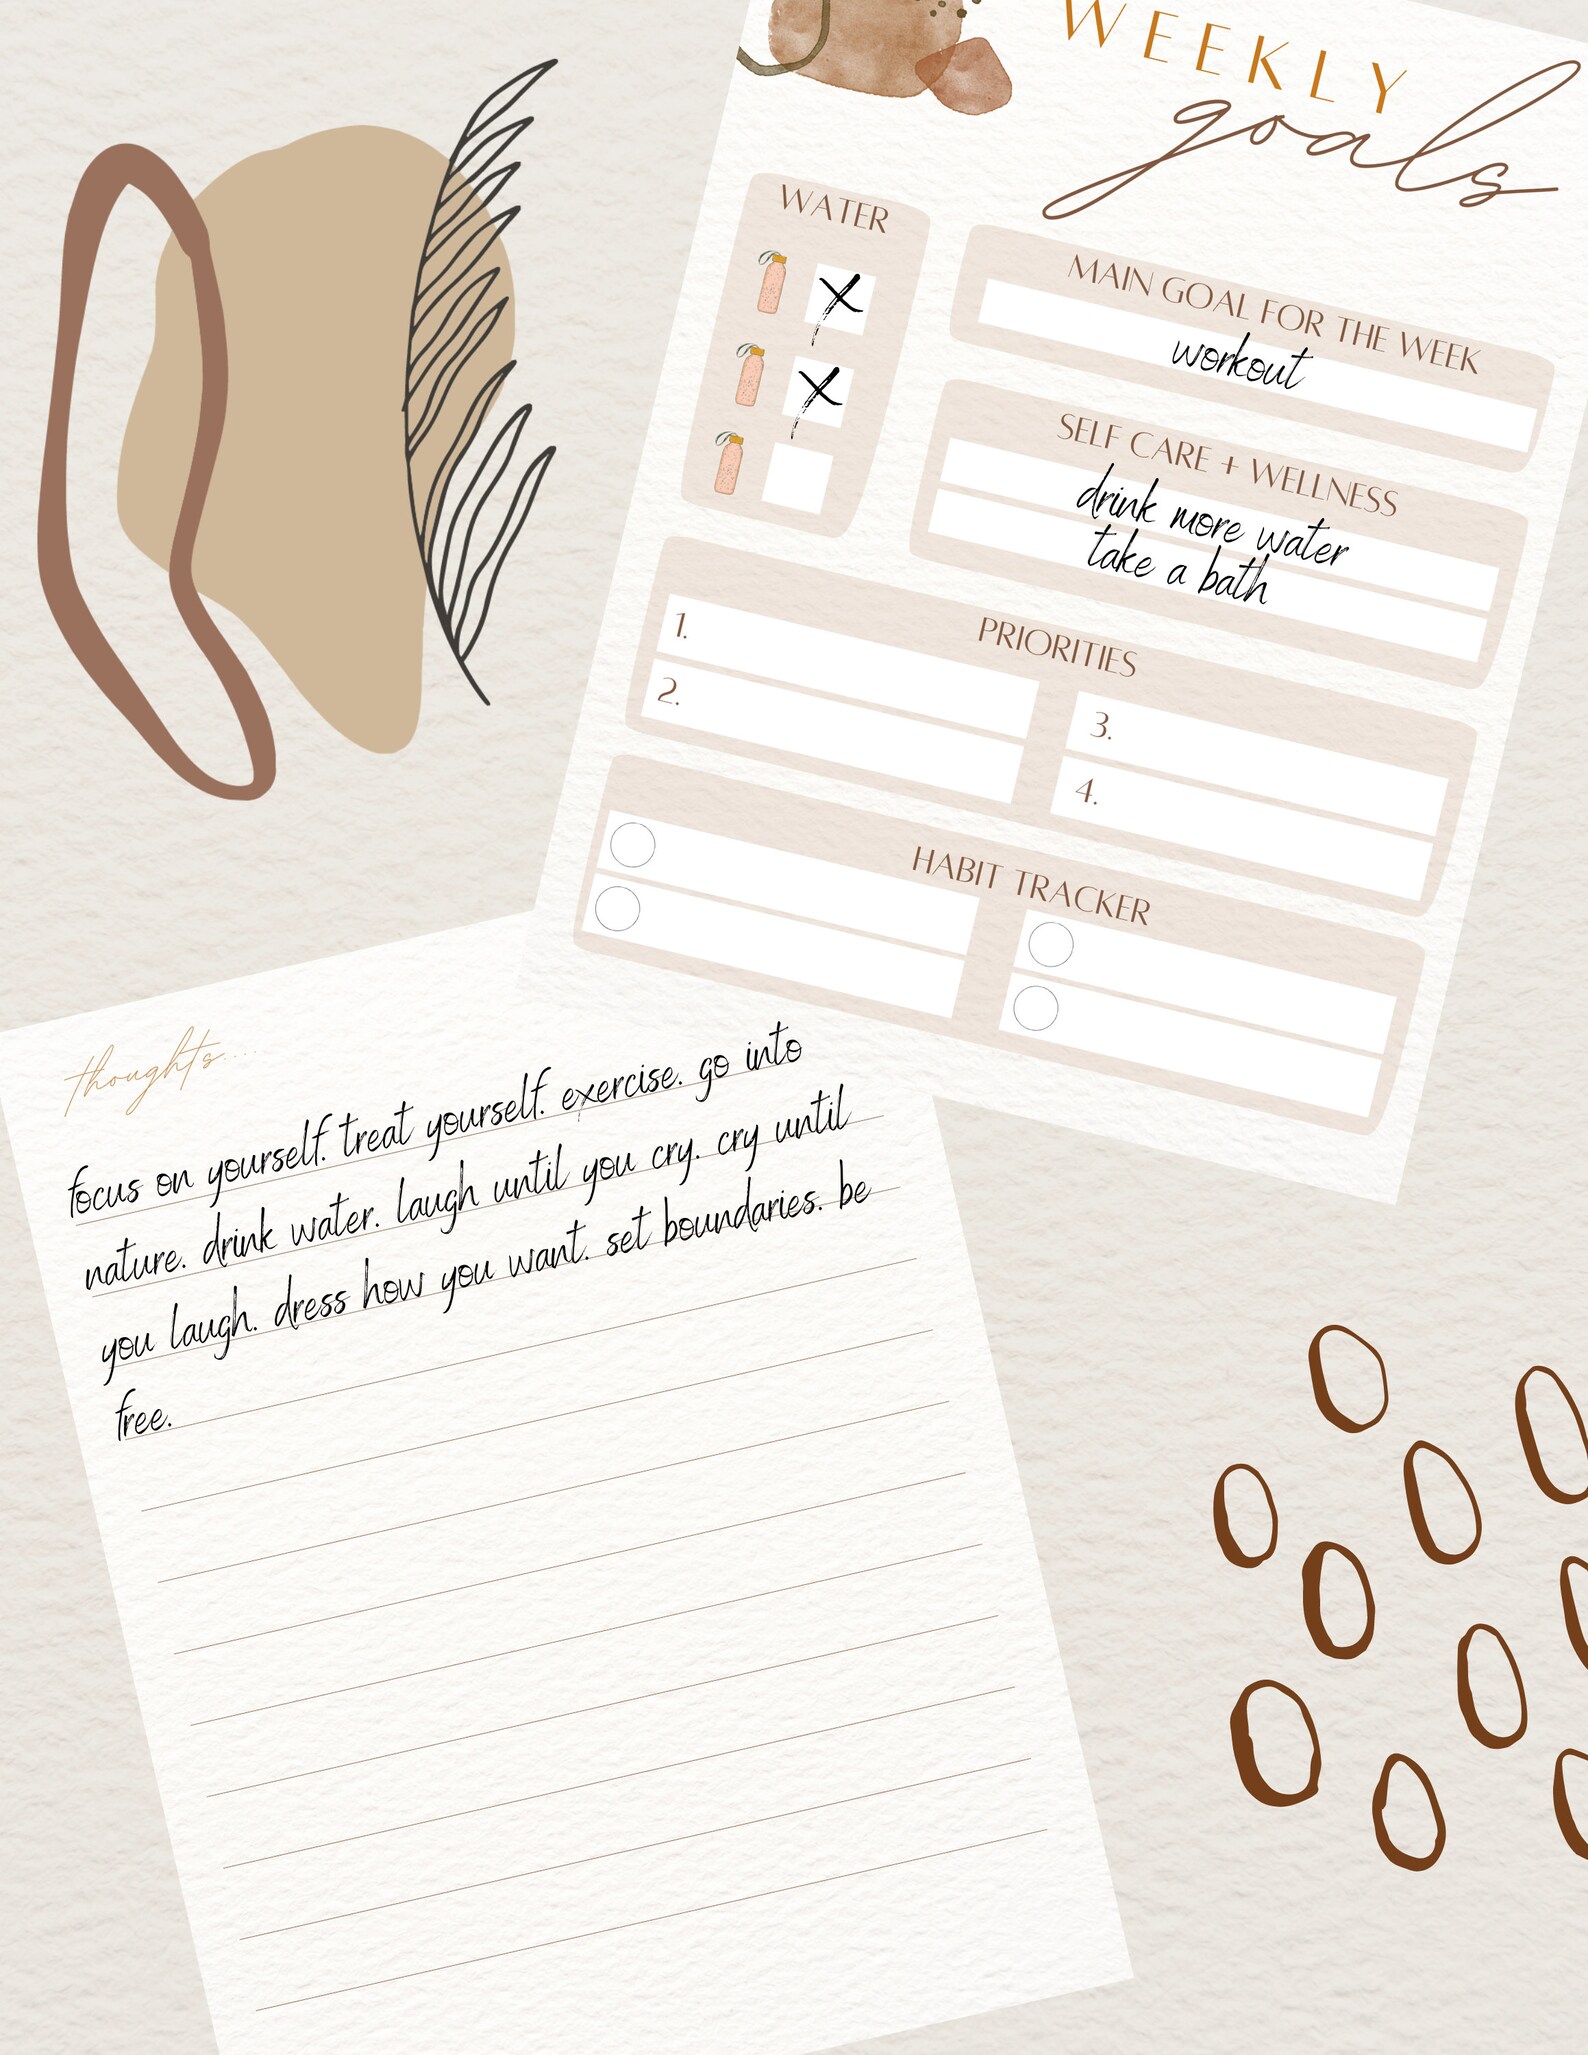 WEEKLY
goals
WATER
X
X
MAIN GOAL FOR THE WEEK
workout
SELF CARE + WELLNESS
drink more water
take a bath
PRIORITIES
1.
2.
3.
4.
HABIT TRACKER
thoughts....
focus on yourself. treat yourself. exercise. go into
nature. drink water. laugh until you cry. cry until
you laugh. dress how you want. set boundaries. be
free.